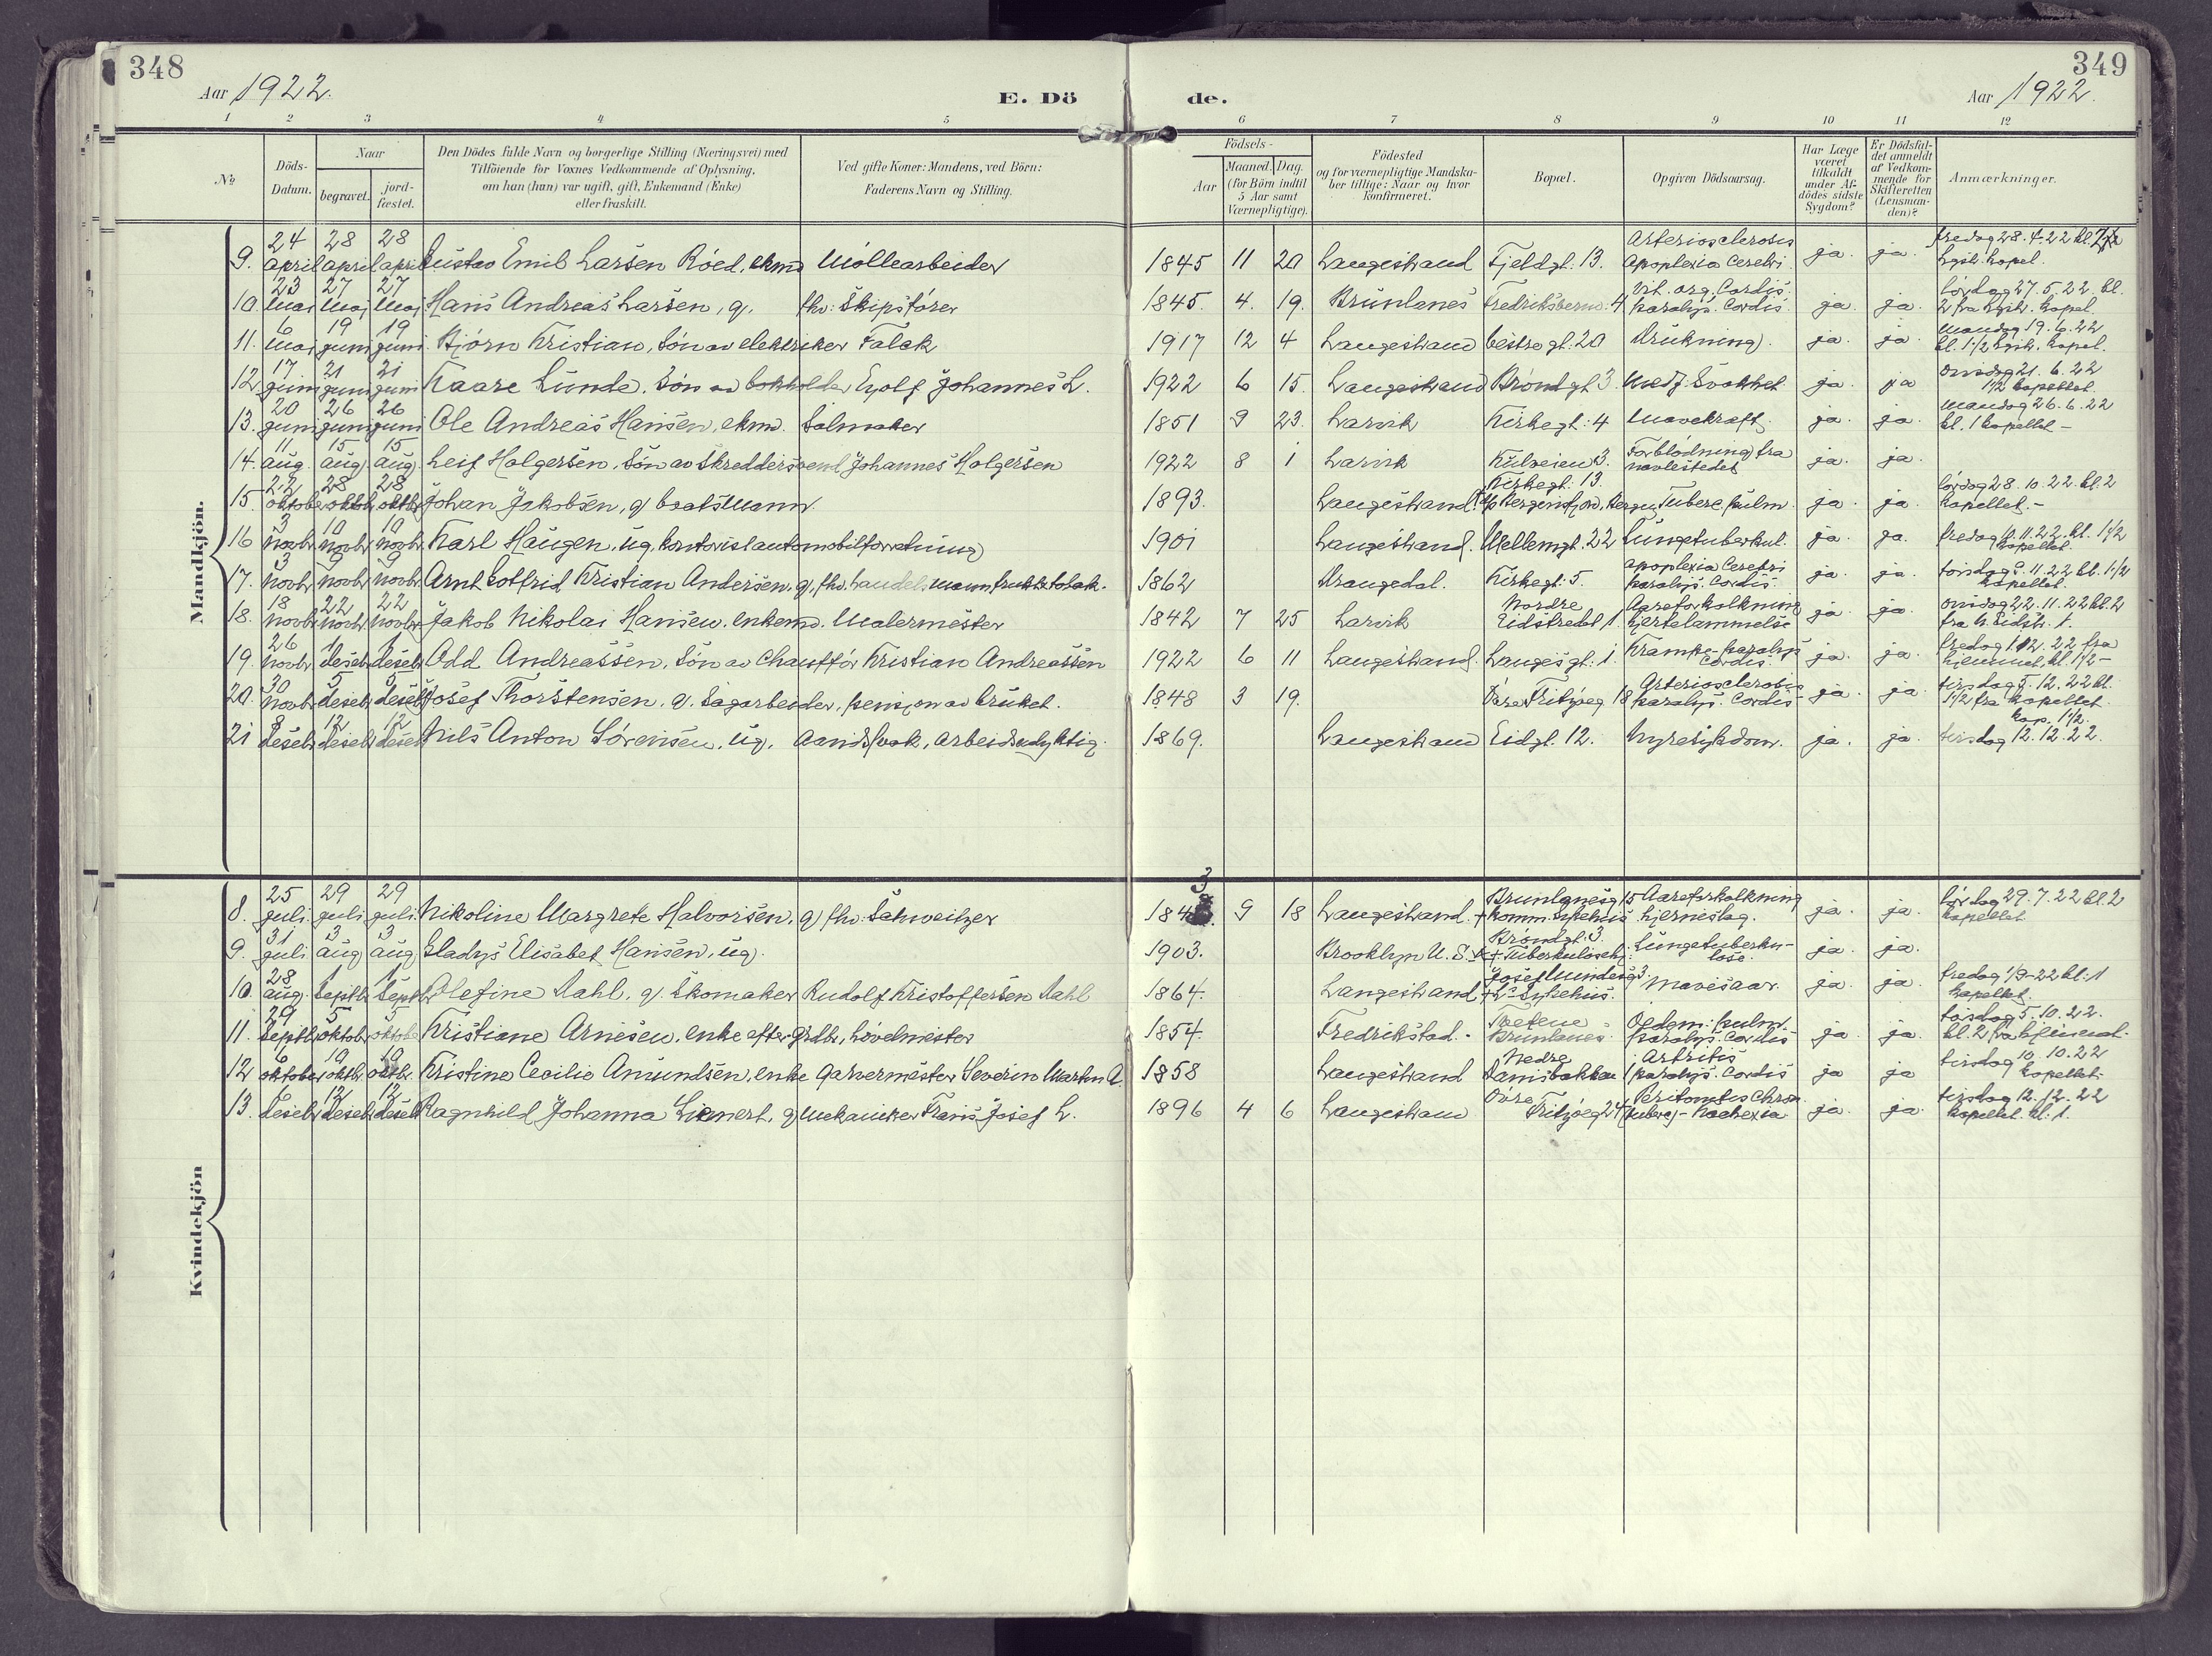 348
349
Aar 1922.
E. Dö
de.
Aar 1922.
1 2 3 4 5 6 7 8 9 10 11 12
№
Döds-Datum.
Naar
begravet.
jord-fæstet.
Den Dödes fulde Navn og borgerlige Stilling (Næringsvei) med
Tilföiende for Voxnes Vedkommende af Oplysning,
om han (hun) var ugift, gift, Enkemand (Enke)
eller fraskilt.
Ved gifte Koner: Mandens, ved Börn:
Faderens Navn og Stilling.
Födsels-
Aar
Maaned. Dag.
(for Börn indtil
5 Aar samt
Værnepligtige).
Födested
og for værnepligtige Mandska-
ber tillige: Naar og hvor
konfirmeret.
Bopæl.
Opgiven Dödsaarsag.
Har Læge
været
tilkaldt
under Af-
dödes sidste
Sygdom?
Er Dödsfal-
det anmeldt
af Vedkom-
mende for
Skifteretten
(Lensman-
den)?
Anmærkninger.
Mandkjön.
9. 24 april 28 april 28 april Gustav Emil Larsen Röed, ekmd Möllearbeider 1845 11 20 Langestrand Fjeldgt. 13. Arteriosclerosis Apoplexia Cerebri ja. ja. fredag 28.4.22 kl. kapel.
10. 23 mai 27 mai 27 mai Hans Andreas Larsen, g. fhv. Skipsförer 1845. 4. 19. Brunlanes Fredriksvern: 4 Vit. org. Cordis. paralys. Cordis. ja. ja. lördag 27.5.22 kl. 2 fra kapel.
11. 6 mai 19 juni 19 juni. Bjórn Kristian, Sön av elektriker Falck 1917 12 4 Langestrand Vestregt. 20 Drukning). ja. ja. mandag 19.6.22 kl. 1 1/2 kapel.
12 17 juni 21 juni 21 juni Kaare Lunde. Sön av bokholder Eyolf Johannes L. 1922 6 15. Langestrand Bröndgt. 3. Medf. Svakhet ja. ja onsdag 21.6.22 1 1/2 kapellet.
13. 20 juni 26 juni 26 juni Ole Andreas Hansen, ekmd. Salmaker 1851 9 23. Larvik Kirkegt: 4 Mavekræft ja. ja. mandag 26.6.22 kl. 1 kapellet -
14. 11 aug. 15 aug 15 aug. Leif Holgersen, Sön av Skreddersvend Johannes Holgersen 1922 8 1 Larvik Kulveien 3. Forblödning fra navlestedet ja. ja.
15. 22 oktober 28 oktbr 28 oktbr Johan Jakobsen, g baatsmann. 1893. Langestrand. Kirkegt. 13. Bergensfjord, Bergen Tuberc. pulm. ja. ja. lördag 28.10.22 kl. 2 kapellet. -
16 3 novbr 10 novbr 10 novbr. Karl Haugen, ug, kontorist automobilforretning) 1901 Langestrand. Mellemgt. 22 Lungetuberkul. ja. ja. fredag 10.11.22 kl. 1 1/2 kapellet.
17. 3 novbr 9 novbr 9 novbr. Arnt Gotfrid Kristian Andersen, g, fhv. handelsmann frukt & tobak. 1862 Drangedal. Kirkegt. 5. Apoplexia Cerebri paralys. Cordis. ja. ja. torsdag 9.11.22 kl. 1 1/2 kapellet.
18. 18 novbr 22 novbr 22 novbr Jakob Nikolai Hansen. enkem. Malermester 1842 7 25 Larvik Nordre Eidstredet 1. Aareforkalkning Hjertelammelse ja. ja. onsdag 22.11.22 kl. 2 fra N. Eidstr. 1.
19. 26 novbr. 1 desebr 1 desebr. Odd Andreassen. Sön av Chauffór Kristian Andreassen 1922 6 11 Langestrand. Langesgt. 1. Krampe-paralys Cordis. ja. ja. fredag 1.12.22 fra hjemmet, kl. 1 1/2 -
20. 30 novbr 5 desebr 5 desebr Josef Thorstensen, g. Sagarbeider, pensjon av bruket. 1848 3 19. Övre Fritzöeg 18 Arteriosclerosis paralys. Cordis - ja. ja. tirsdag 5.12.22 kl. 1 1/2 fra kapellet
21 8 desebr 12 desebr 12 desebr Nils Anton Sörensen, ug. aandssvak, arbeidsudyktig. 1869. Langestrand Eidgt. 12. Nyresykdom. ja. ja. kap. 1 1/2. tirsdag 12.12.22.
Kvindekjön
8. 25 juli. 29 juli 29 juli. Nikoline Margrete Halvorsen, g) fhv. Schweitzer 1843 9 18 Langestrand. Brunlanesg 15 + komm. Sykehus Aareforkalkning hjerneslag. ja. ja. lördag 29.7.22 kl. 2 kapellet
9. 31 juli 3 aug 3 aug Gladys Elisabet Hansen, ug. 1903. Brooklyn U.S. Bröndgt. 3. + Tuberkulosehj. Lungetuberku-lose. ja. ja.
10. 28 aug. 1 Septbr. 1 Septbr Olefine Dahl. g. Skomaker Rudolf Kristoffersen Dahl 1864. Langestrand Josef Mundesg 3. + Sykehus. Mavesaar. ja. ja. fredag 1/9-22 kl. 1 kapellet.
11. 29 Septbr 5 oktobr 5 oktobr Kristiane Arnesen, enke efter grdbr, hövelmester 1854. Fredrikstad. - Tvetene Brunlanes. Oedem: pulm. paralys. Cordis ja. ja. torsdag 5.10.22. kl. 2 fra hjemmet.
12 6 oktober 10 oktbr. 10 oktbr. Kristine Cecilie Amundsen, enke garvermester Severin Martin A. 1858 Langestrand Nedre Damsbakken 1 Artritis paralys. Cordis ja ja tirsdag 10.10.22 kapellet.
13. 6 desebr 12 desebr 12 desebr Ragnhild Johanna Lienert, g. mekaniker Frans Josef L. 1896 4 6 Langestrand Övre Fritzöeg 24 Peritonitis chron. (tuberc) - Kachexia ja. ja. tirsdag 12.12.22 kapellet. kl. 1.